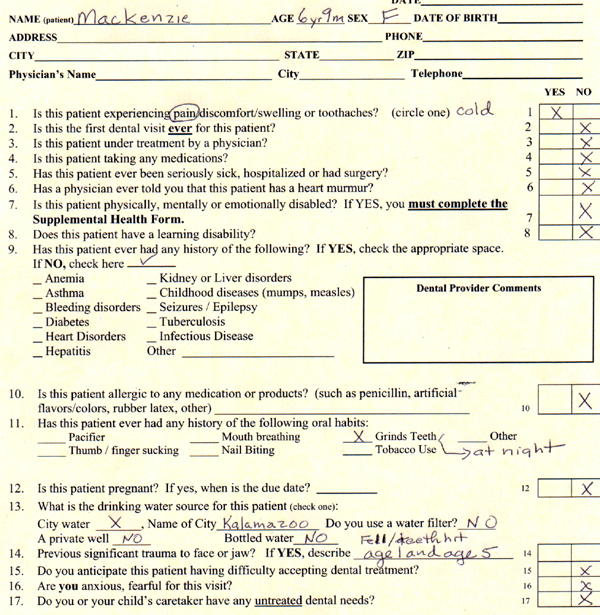 DATE
NAME (patient) Mackenzie AGE 6yr9m SEX F DATE OF BIRTH
ADDRESS PHONE
CITY STATE ZIP
Physician's Name City Telephone
YES NO
1. Is this patient experiencing pain/discomfort/swelling or toothaches? (circle one) cold 1 X
2. Is this the first dental visit ever for this patient? 2 X
3. Is this patient under treatment by a physician? 3 X
4. Is this patient taking any medications? 4 X
5. Has this patient ever been seriously sick, hospitalized or had surgery? 5 X
6. Has a physician ever told you that this patient has a heart murmur? 6 X
7. Is this patient physically, mentally or emotionally disabled? If YES, you must complete the
Supplemental Health Form. 7 X
8. Does this patient have a learning disability? 8 X
9. Has this patient ever had any history of the following? If YES, check the appropriate space.
If NO, check here ✓
_ Anemia _ Kidney or Liver disorders
_ Asthma _ Childhood diseases (mumps, measles)
_ Bleeding disorders _ Seizures / Epilepsy
_ Diabetes _ Tuberculosis
_ Heart Disorders _ Infectious Disease
_ Hepatitis Other
Dental Provider Comments
10. Is this patient allergic to any medication or products? (such as penicillin, artificial
flavors/colors, rubber latex, other) 10 X
11. Has this patient ever had any history of the following oral habits:
Pacifier Mouth breathing X Grinds Teeth Other
Thumb / finger sucking Nail Biting Tobacco Use → at night
12. Is this patient pregnant? If yes, when is the due date? 12 X
13. What is the drinking water source for this patient (check one):
City water X , Name of City Kalamazoo Do you use a water filter? NO
A private well NO Bottled water NO Fell/teeth hit
14. Previous significant trauma to face or jaw? If YES, describe age 1 and age 5 14
15. Do you anticipate this patient having difficulty accepting dental treatment? 15 X
16. Are you anxious, fearful for this visit? 16 X
17. Do you or your child's caretaker have any untreated dental needs? 17 X